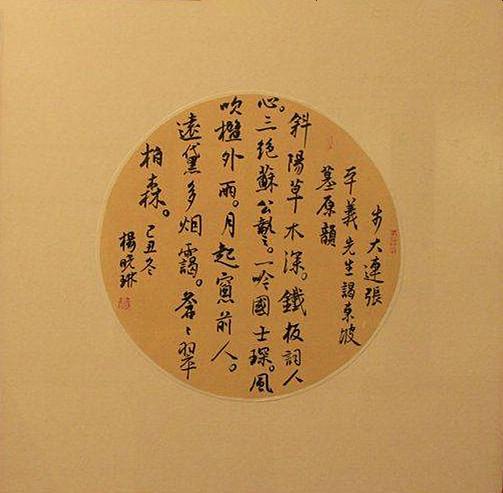 步大連張
平義先生謁東坡
墓原韻
斜陽草木深。鐵板詞人
心。三絕蘇公藝。一吟國士琛。風
吹檻外雨。月起窗前人。
遠黛多烟靄。蒼々翠
柏森。
己丑冬
楊曉琳